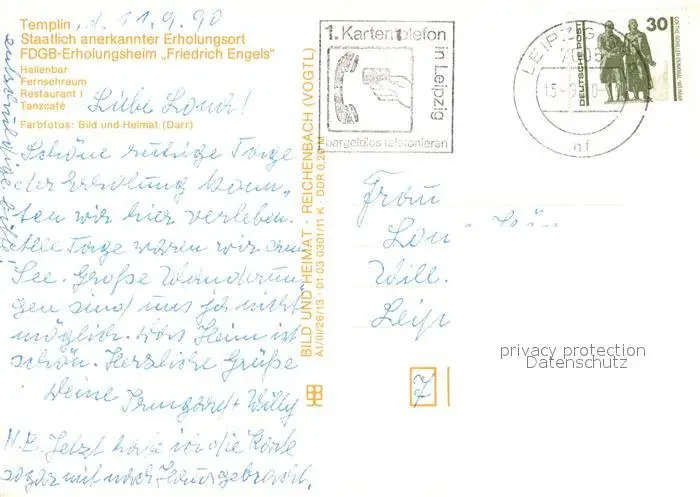 Templin, d. 11.9.90
Staatlich anerkannter Erholungsort
FDGB-Erholungsheim „Friedrich Engels"
Hallenbar
Fernsehraum
Restaurant I
Tanzcafé
Farbfotos: Bild und Heimat (Darr)
Liebe Lona!
Schöne ruhige Tage
der Erholung konn-
ten wir hier verleben.
Alle Tage waren wir am
See. Große Wanderun-
gen sind uns ja nicht
möglich. Das Heim ist
schön. Herzliche Grüße
Deine Irmgard + Willy
N.B. Jetzt habe ich die Karte
sogar mit nach Hause gebracht,
entschuldige bitte!
BILD UND HEIMAT REICHENBACH (VOGTL)
A1/III/26/13 01 03 0301/11 K DDR 0,20 M
1. Kartentelefon
in Leipzig
bargeldlos telefonieren
LEIPZIG
7005
nf
DEUTSCHE POST
30
GOETHE-SCHILLER-DENKMAL · WEIMAR
Frau
Lon
Will
Leip
7
privacy protection
Datenschutz